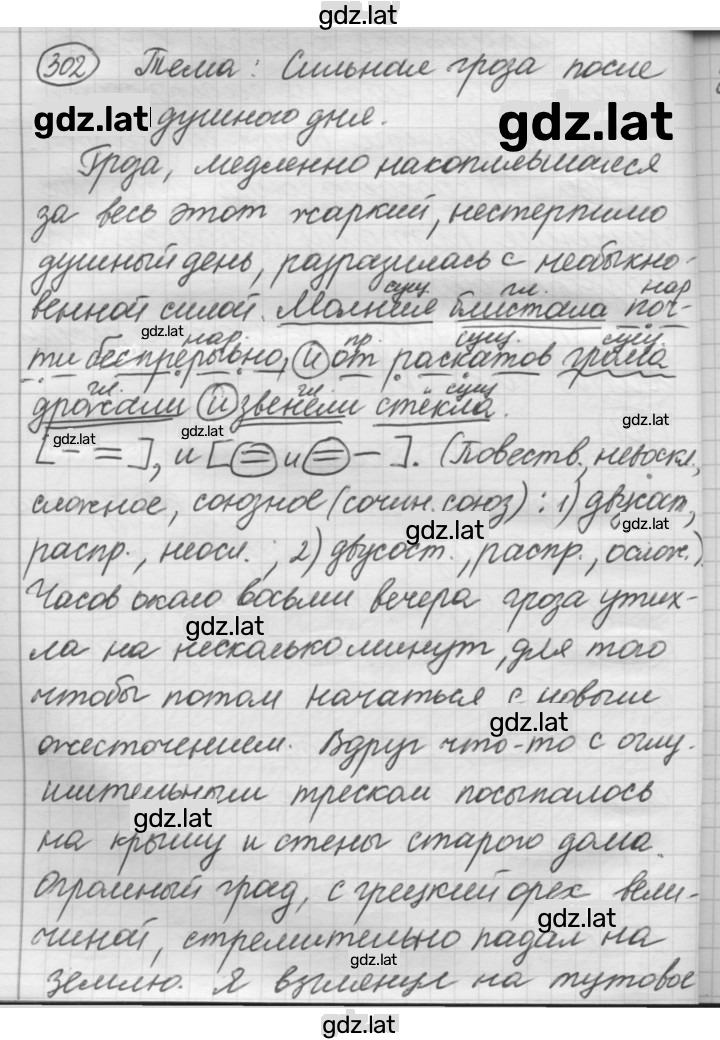 gdz.lat
302 Тема: Сильная гроза после
gdz.lat душного дня. gdz.lat
Гроза, медленно накоплявшаяся
за весь этот жаркий, нестерпимо
душный день, разразилась с необыкно-
сущ. гл. нар
венной силой. Молния блистала поч-
gdz.lat нар. пр. сущ. сущ.
ти беспрерывно, и от раскатов грома
гл. гл. сущ
дрожали и звенели стёкла.
gdz.lat gdz.lat gdz.lat
[- =], и [= и = -]. (Повеств., невоскл.,
сложное, союзное (сочин. союз): 1) двусост.,
gdz.lat gdz.lat
распр., неосл.; 2) двусост., распр., ослож.)
Часов около восьми вечера гроза утих-
gdz.lat
ла на несколько минут, для того
чтобы потом начаться с новым
gdz.lat
ожесточением. Вдруг что-то с оглу-
шительным треском посыпалось
gdz.lat
на крышу и стены старого дома.
Огромный град, с грецкий орех вели-
gdz.lat
чиной, стремительно падал на
gdz.lat
землю. Я взглянул на тутовое
gdz.lat